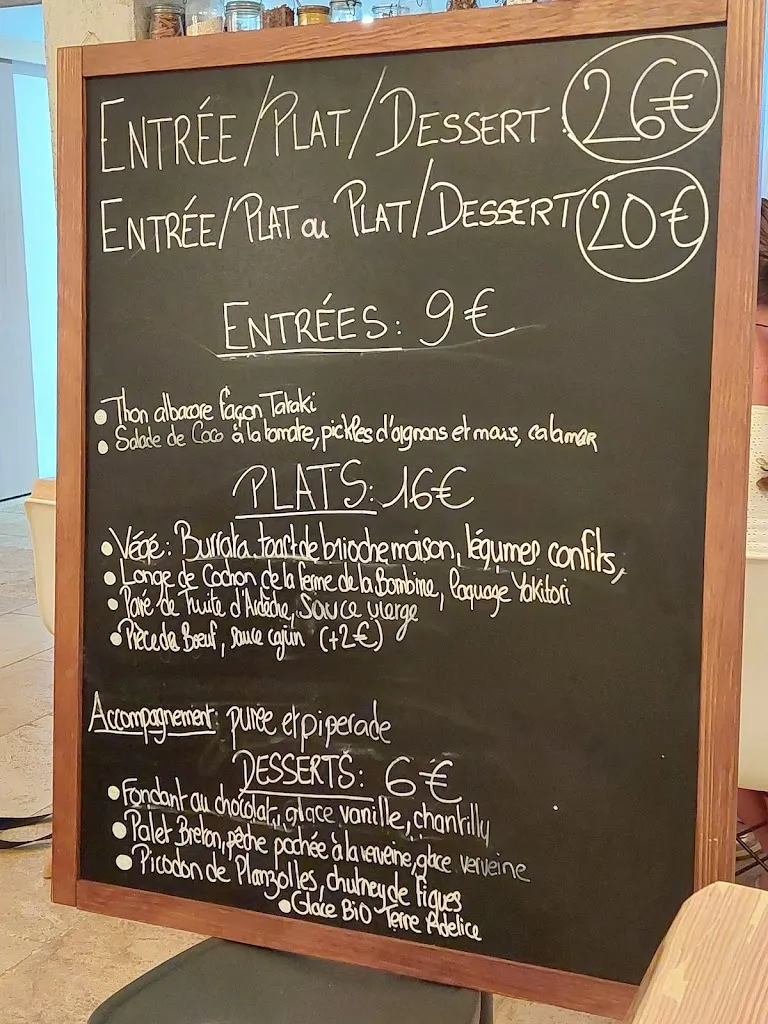 ENTRÉE/PLAT/DESSERT : 26€
ENTRÉE/PLAT ou PLAT/DESSERT 20€
ENTRÉES: 9€
• Thon albacore façon Tataki
• Salade de Coco à la tomate, pickles d'oignons et maïs, calamar
PLATS: 16€
• Végé: Burrata, toast de brioche maison, légumes confits,
• Longe de Cochon de la ferme de la Bombine, laquage Yakitori
• Pavé de Truite d'Ardèche, sauce vierge
• Pièce de Boeuf, sauce cajun (+2€)
Accompagnement: purée et piperade
DESSERTS: 6€
• Fondant au chocolat, glace vanille, chantilly
• Palet Breton, pêche pochée à la verveine, glace verveine
• Picodon de Planzolles, chutney de figues
• Glace BiO Terre Adelice